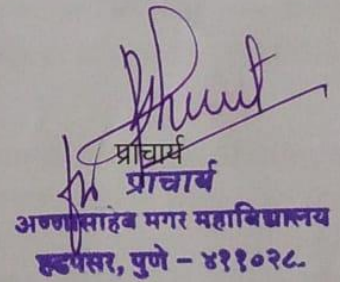 प्राचार्य
प्राचार्य
अण्णासाहेब मगर महाविद्यालय
हडपसर, पुणे - ४११०२८.